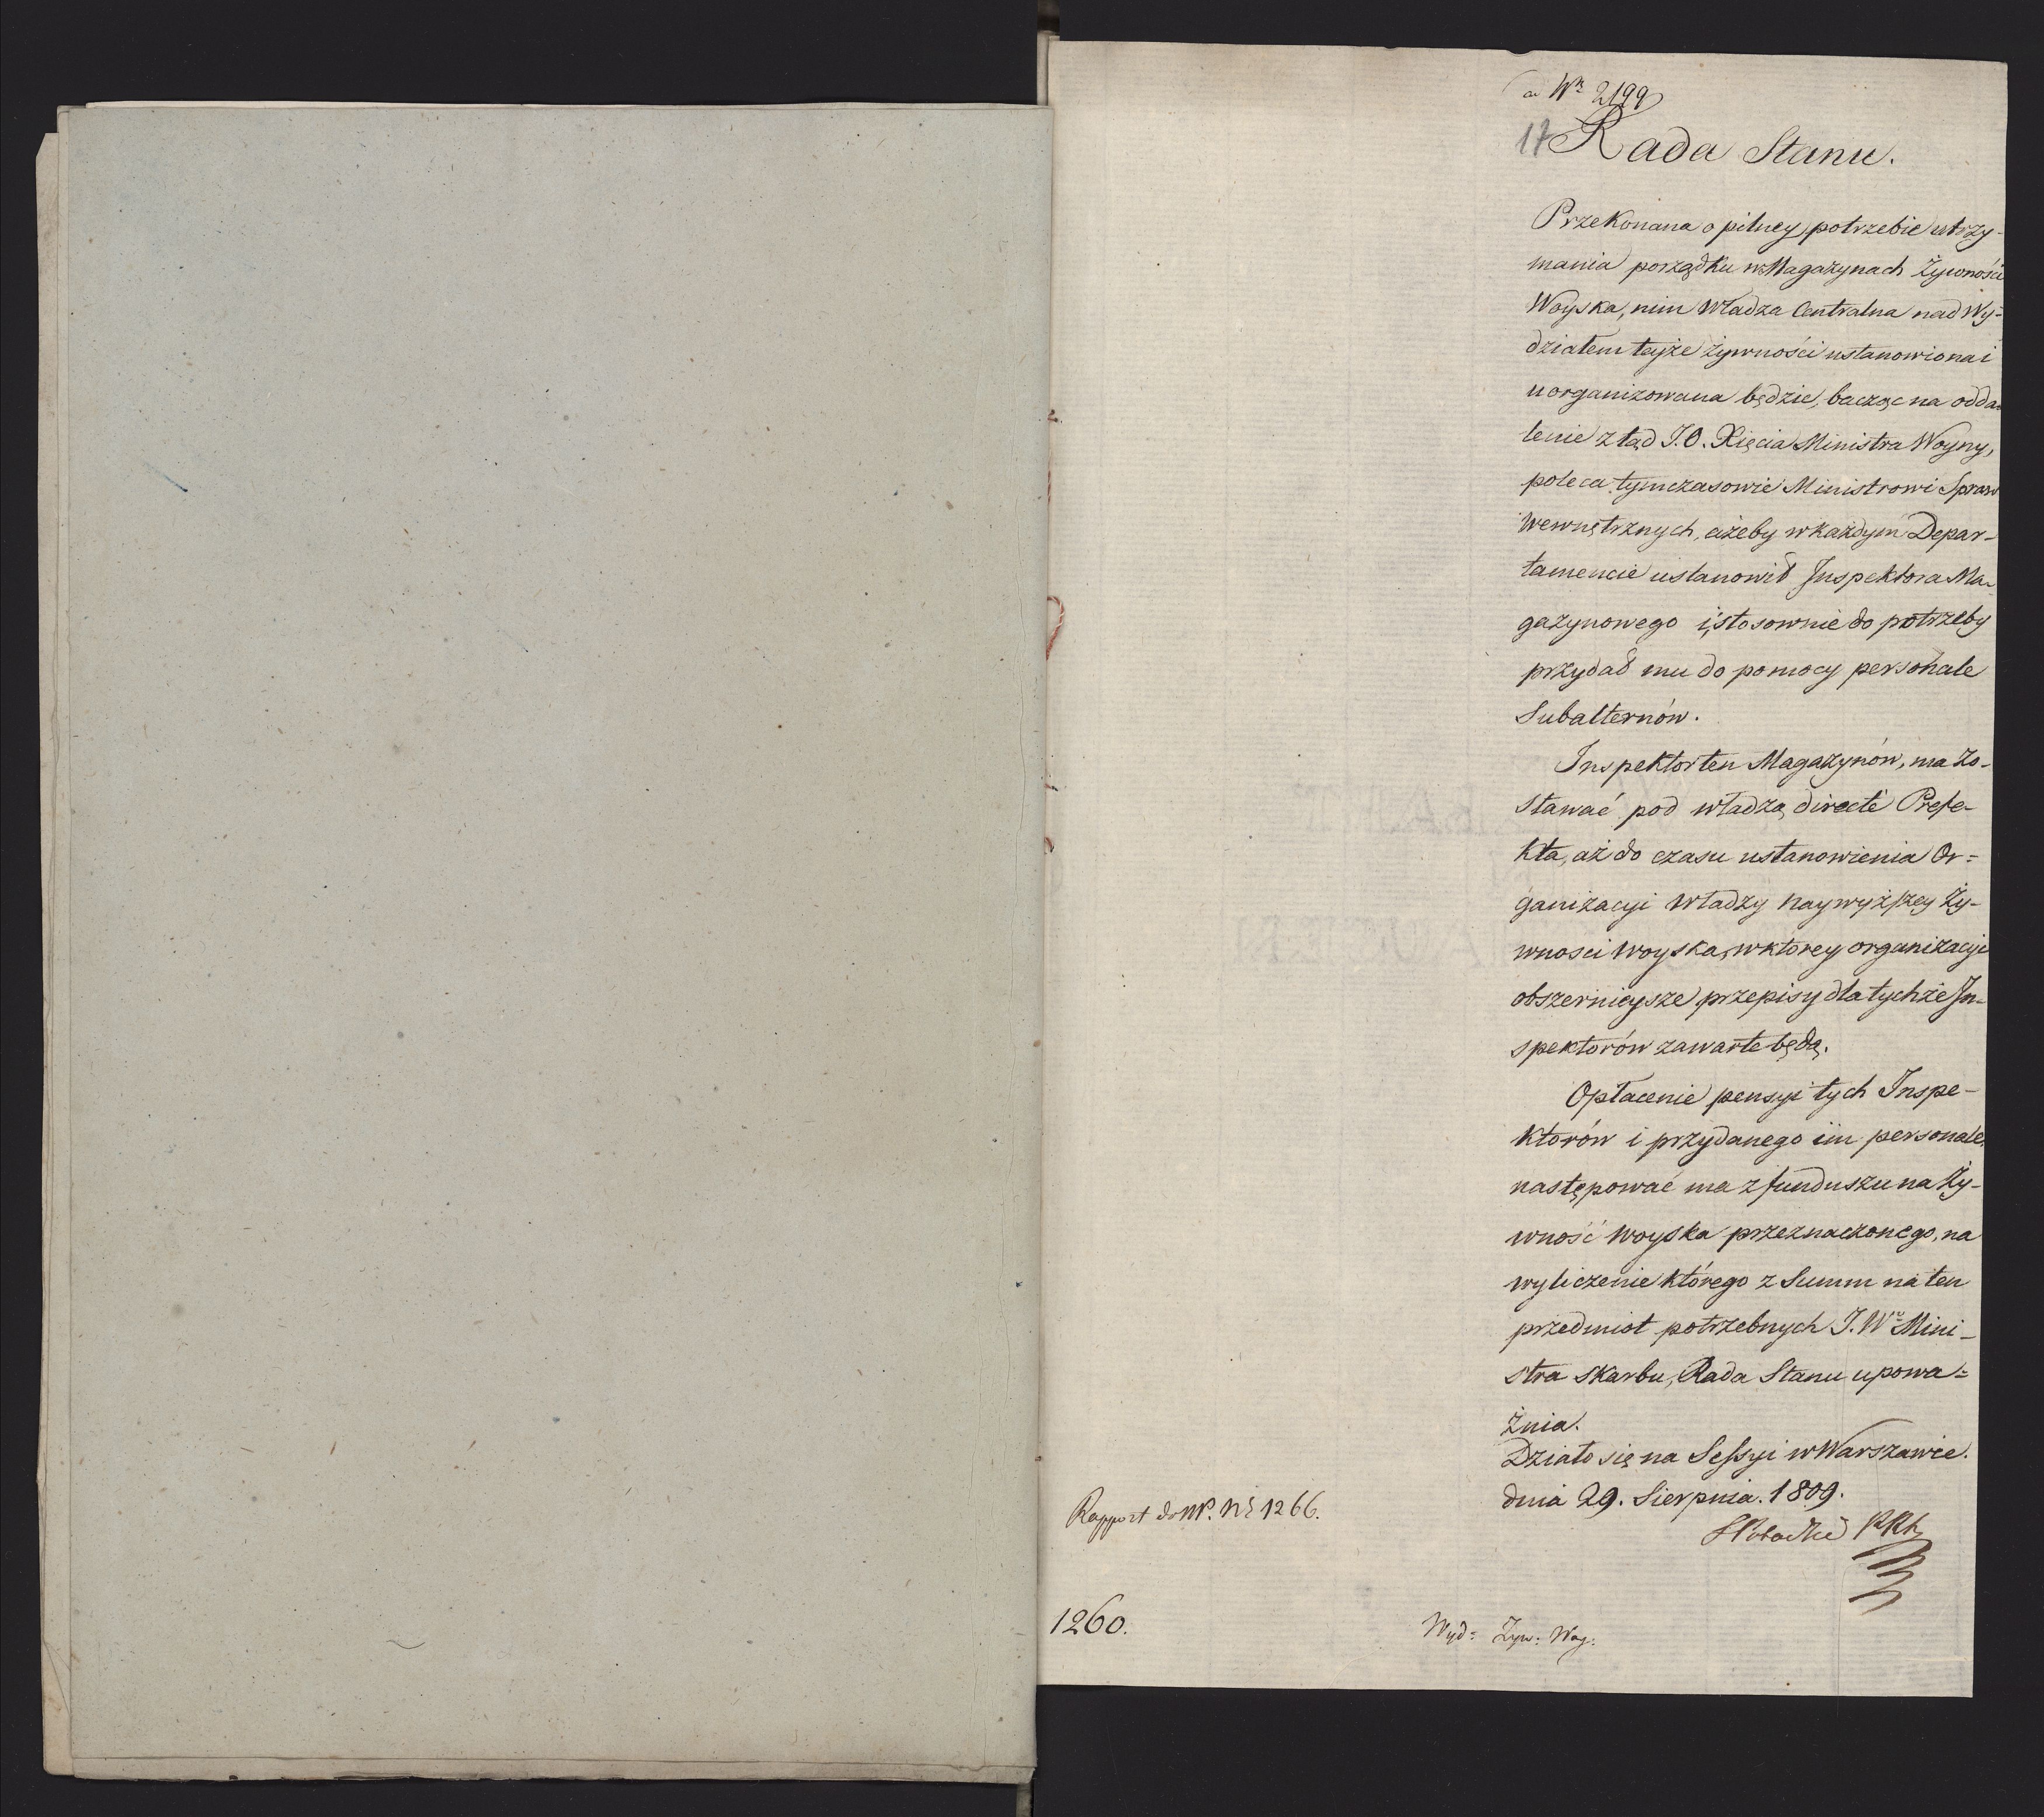 a Nr 2199
17
Rada Stanu.
Przekonana o pilney potrzebie utrzy-
mania porządku w Magazynach Żywności
Woyska, nim Władza Centralna nad Wy-
działem teyże żywności ustanowiona i
uorganizowana będzie, bacząc na odda-
lenie z tąd J. O. Xięcia Ministra Woyny,
poleca tymczasowie Ministrowi Spraw
Wewnętrznych, ażeby w każdym Depar-
tamencie ustanowił Inspektora Ma-
gazynowego i, stosownie do potrzeby
przydał mu do pomocy personale
Subalternów.
Inspektor ten Magazynów, ma zo-
stawać pod władzą directé Prefe-
kta, aż do czasu ustanowienia Or-
ganizacyi Władzy naywyższey Ży-
wnosci Woyska, w ktorey organizacyi
obszernieysze przepisy dla tychże In-
spektorów zawarte będą.
Opłacenie pensyi tych Inspe-
ktorów i przydanego im personale
następować ma z funduszu na Ży-
wność Woyska przeznaczonego, na
wyliczenie którego z Summ na ten
przedmiot potrzebnych J. Wo Mini-
stra Skarbu, Rada Stanu upowa-
żnia.
Działo się na Sessyi w Warszawie.
dnia 29. Sierpnia. 1809.
Rapport do NP. Nr 1266.
1260.
Wyd: Żyw: Woy: